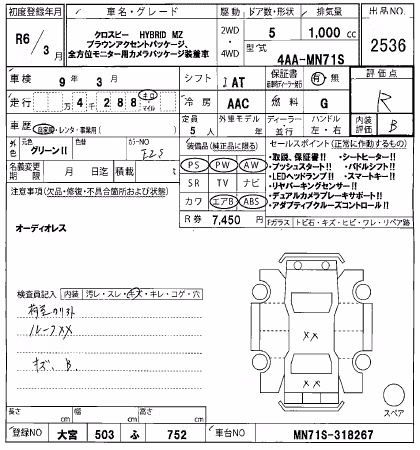 初度登録年月 車名・グレード 駆動 ドア数・形状 排気量 出品NO.
R6/3月 クロスビー HYBRID MZ
ブラウンアクセントパッケージ、
全方位モニター用カメラパッケージ装着車
2WD・4WD 5 1,000 cc 2536
型式 4AA-MN71S
車検 9年 3月 シフト AT 保証書 有・無 評価点
走行 万4千288 キロ マイル 冷房 AAC 燃料 G R
車歴 自家用・レンタ・事業用( ) 定員 5人 外車モデル 年 ディーラー・並行 ハンドル 左・右 内装評価 B
外色 元色 グリーンII 色 カラーNO
装備品(純正品に限る) セールスポイント(正常に作動するもの)
名義変更期限 月 日迄 積載 t
PS PW AW
SR TV ナビ
カワ エアB ABS
・取説、保証書!! ・シートヒーター!!
・プッシュスタート!! ・パドルシフト!!
・LEDヘッドランプ!! ・スマートキー!!
・リヤパーキングセンサー!!
・デュアルカメラブレーキサポート!!
・アダプティブクルーズコントロール!!
注意事項(欠品・修復・不具合箇所および状態)
R券 7,450 円
Fガラス トビ石・キズ・ヒビ・ワレ・リペア跡
オーディオレス
検査員記入 内装 汚レ・スレ・キズ・キレ・コゲ・穴
ルーフXX
キズ、B
XX
XX
スペア
長さ cm 幅 cm 高さ cm
登録NO 大宮 503 ふ 752 車台NO MN71S-318267